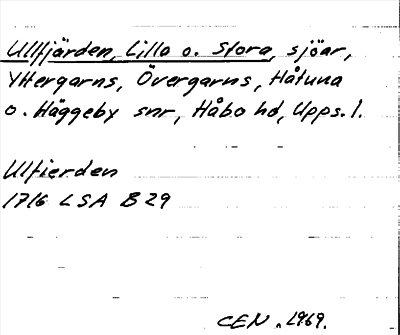 Ullfjärden, Lilla o. Stora, sjöar,
Yttergarns, Övergarns, Håtuna
o. Häggeby snr, Håbo hd, Upps. l.
Ulfierden
1716 LSA B 29
CEN. 1969.